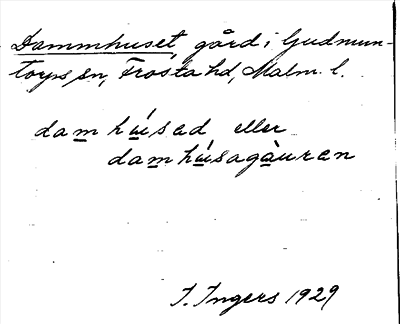 Dammhuset, gård i Gudmun-
torps sn, Frosta hd, Malm. l.
damhúsad eller
damhúsagàuren
I. Ingers 1929